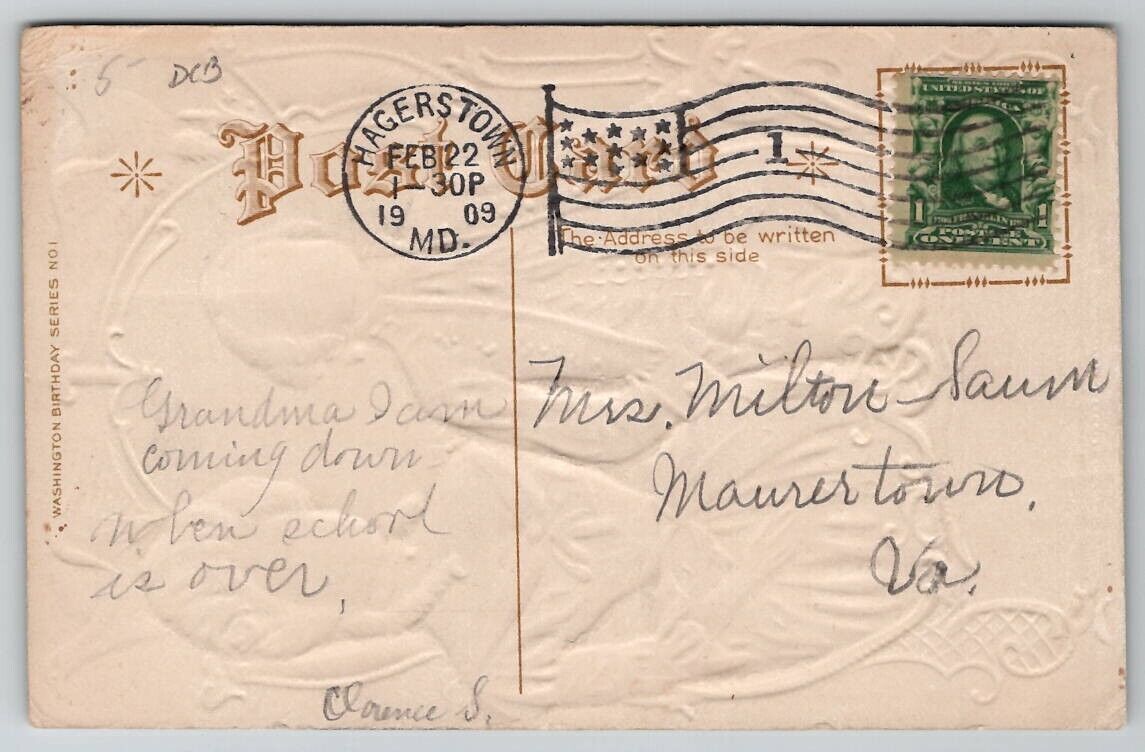 5 DCB
Post Card
HAGERSTOWN
FEB 22
1-30P
19 09
MD.
1
SERIES 1902
UNITED STATES OF
AMERICA
1 FRANKLIN 1
POSTAGE
ONE CENT
The Address to be written
on this side
WASHINGTON BIRTHDAY SERIES NO 1
Grandma I am
coming down
when school
is over,
Clarence S.
Mrs. Milton Saum
Maurertown,
Va.